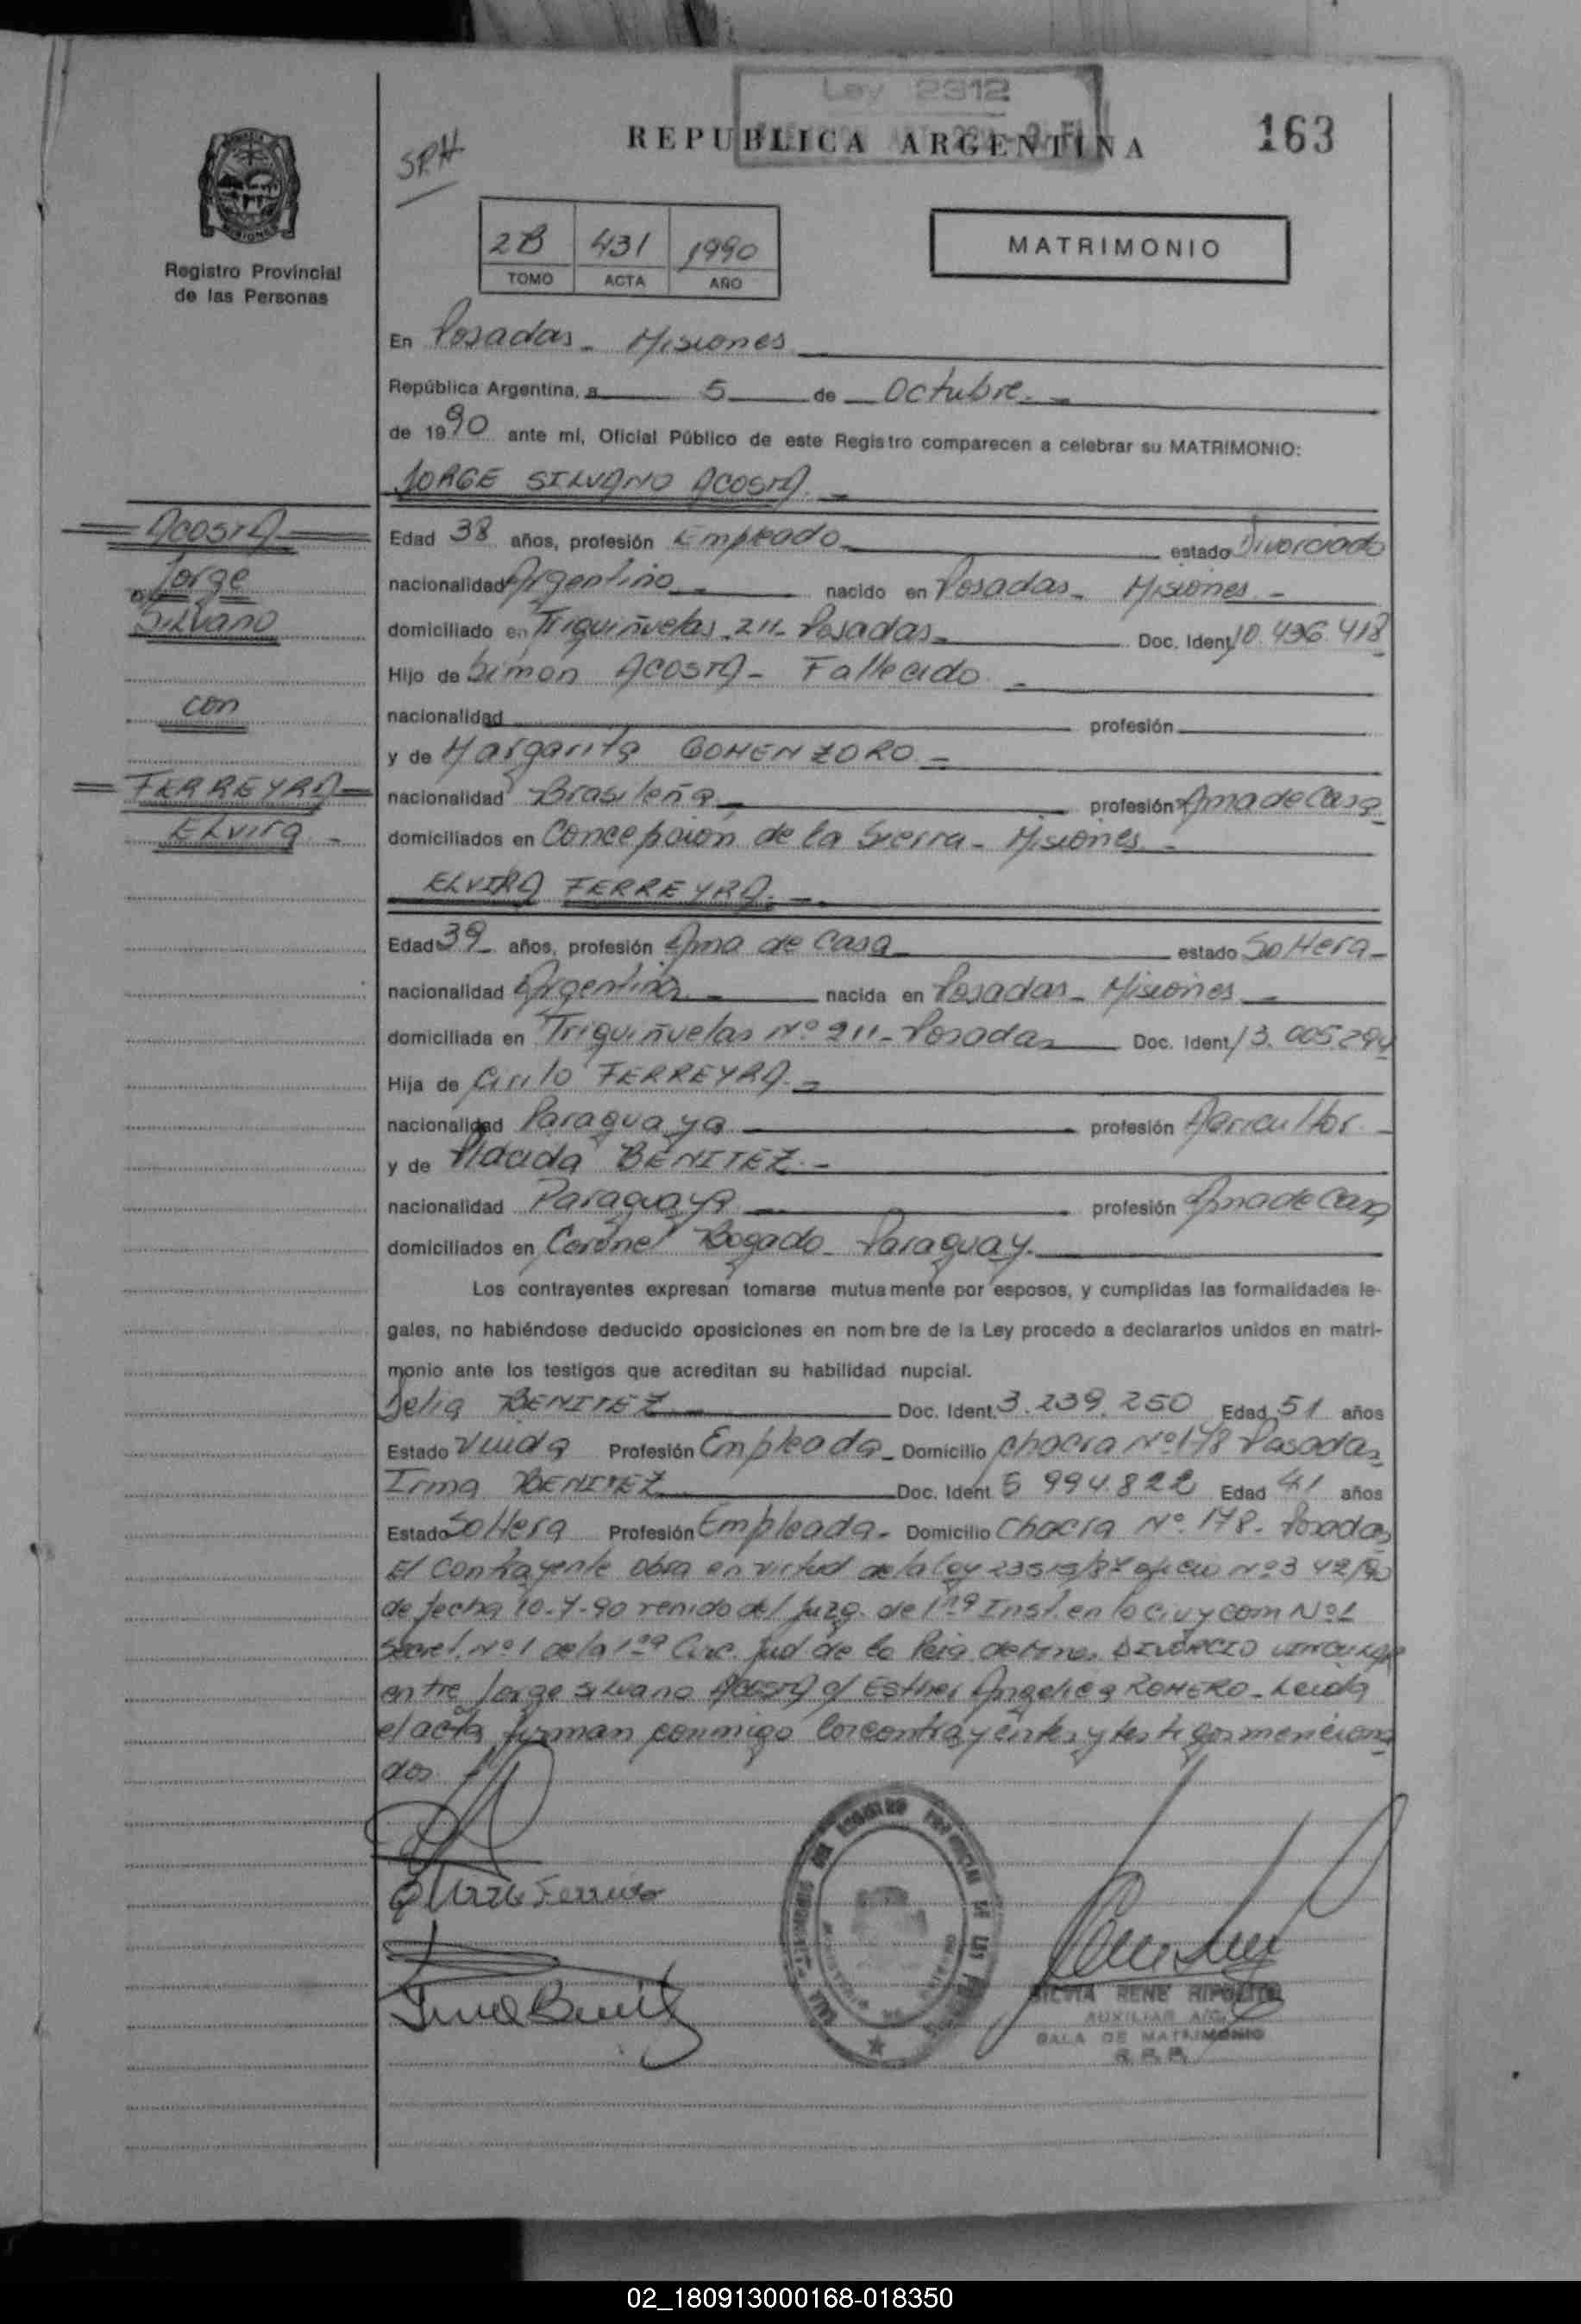 Ley 2312
REPUBLICA ARGENTINA
163
SRH
2B 431 1990
TOMO ACTA AÑO
MATRIMONIO
MISIONES
Registro Provincial
de las Personas
En Posadas - Misiones
República Argentina, a 5 de Octubre.-
de 1990 ante mí, Oficial Público de este Registro comparecen a celebrar su MATRIMONIO:
JORGE SILVANO ACOSTA.-
ACOSTA
Jorge
Silvano
con
FERREYRA
Elvira.-
Edad 38 años, profesión Empleado estado Divorciado
nacionalidad Argentino - nacido en Posadas - Misiones.-
domiciliado en Triquiñuelas 211- Posadas- Doc. Ident. 10.436.418
Hijo de Simón ACOSTA- Fallecido.-
nacionalidad profesión
y de Margarita GOMENZORO.-
nacionalidad Brasileña profesión Ama de Casa
domiciliados en Concepción de la Sierra - Misiones.-
ELVIRA FERREYRA.-
Edad 39 años, profesión Ama de Casa estado Soltera-
nacionalidad Argentina - nacida en Posadas - Misiones-
domiciliada en Triquiñuelas Nº 211- Posadas Doc. Ident. 13.005.294
Hija de Cirilo FERREYRA.-
nacionalidad Paraguaya profesión Agricultor.-
y de Plácida BENITEZ.-
nacionalidad Paraguaya profesión Ama de Casa
domiciliados en Coronel Bogado - Paraguay.
Los contrayentes expresan tomarse mutuamente por esposos, y cumplidas las formalidades le-
gales, no habiéndose deducido oposiciones en nombre de la Ley procedo a declararlos unidos en matri-
monio ante los testigos que acreditan su habilidad nupcial.
Delia BENITEZ Doc. Ident. 3.239.250 Edad 51 años
Estado Viuda Profesión Empleada- Domicilio Chacra Nº 178 Posadas
Irma BENITEZ Doc. Ident. 5 994.822 Edad 41 años
Estado Soltera Profesión Empleada- Domicilio Chacra Nº 178- Posadas
El Contrayente obra en virtud de la ley 23515/87 oficio Nº 342/90
de fecha 10-7-90 venido del Juzg. de 1ra Inst. en lo civ y com Nº 1
Secret. Nº 1 de la 1ra Circ. Jud de la Pcia de Mnes DIVORCIO VINCULAR
entre Jorge Silvano ACOSTA c/ Esther Angelica ROMERO - Leida
el acta firman conmigo los contrayentes y testigos menciona
dos
Elvira Ferreira
Irma Benitez
SILVIA RENE RIPOLITO
AUXILIAR
SALA DE MATRIMONIO
02_180913000168-018350